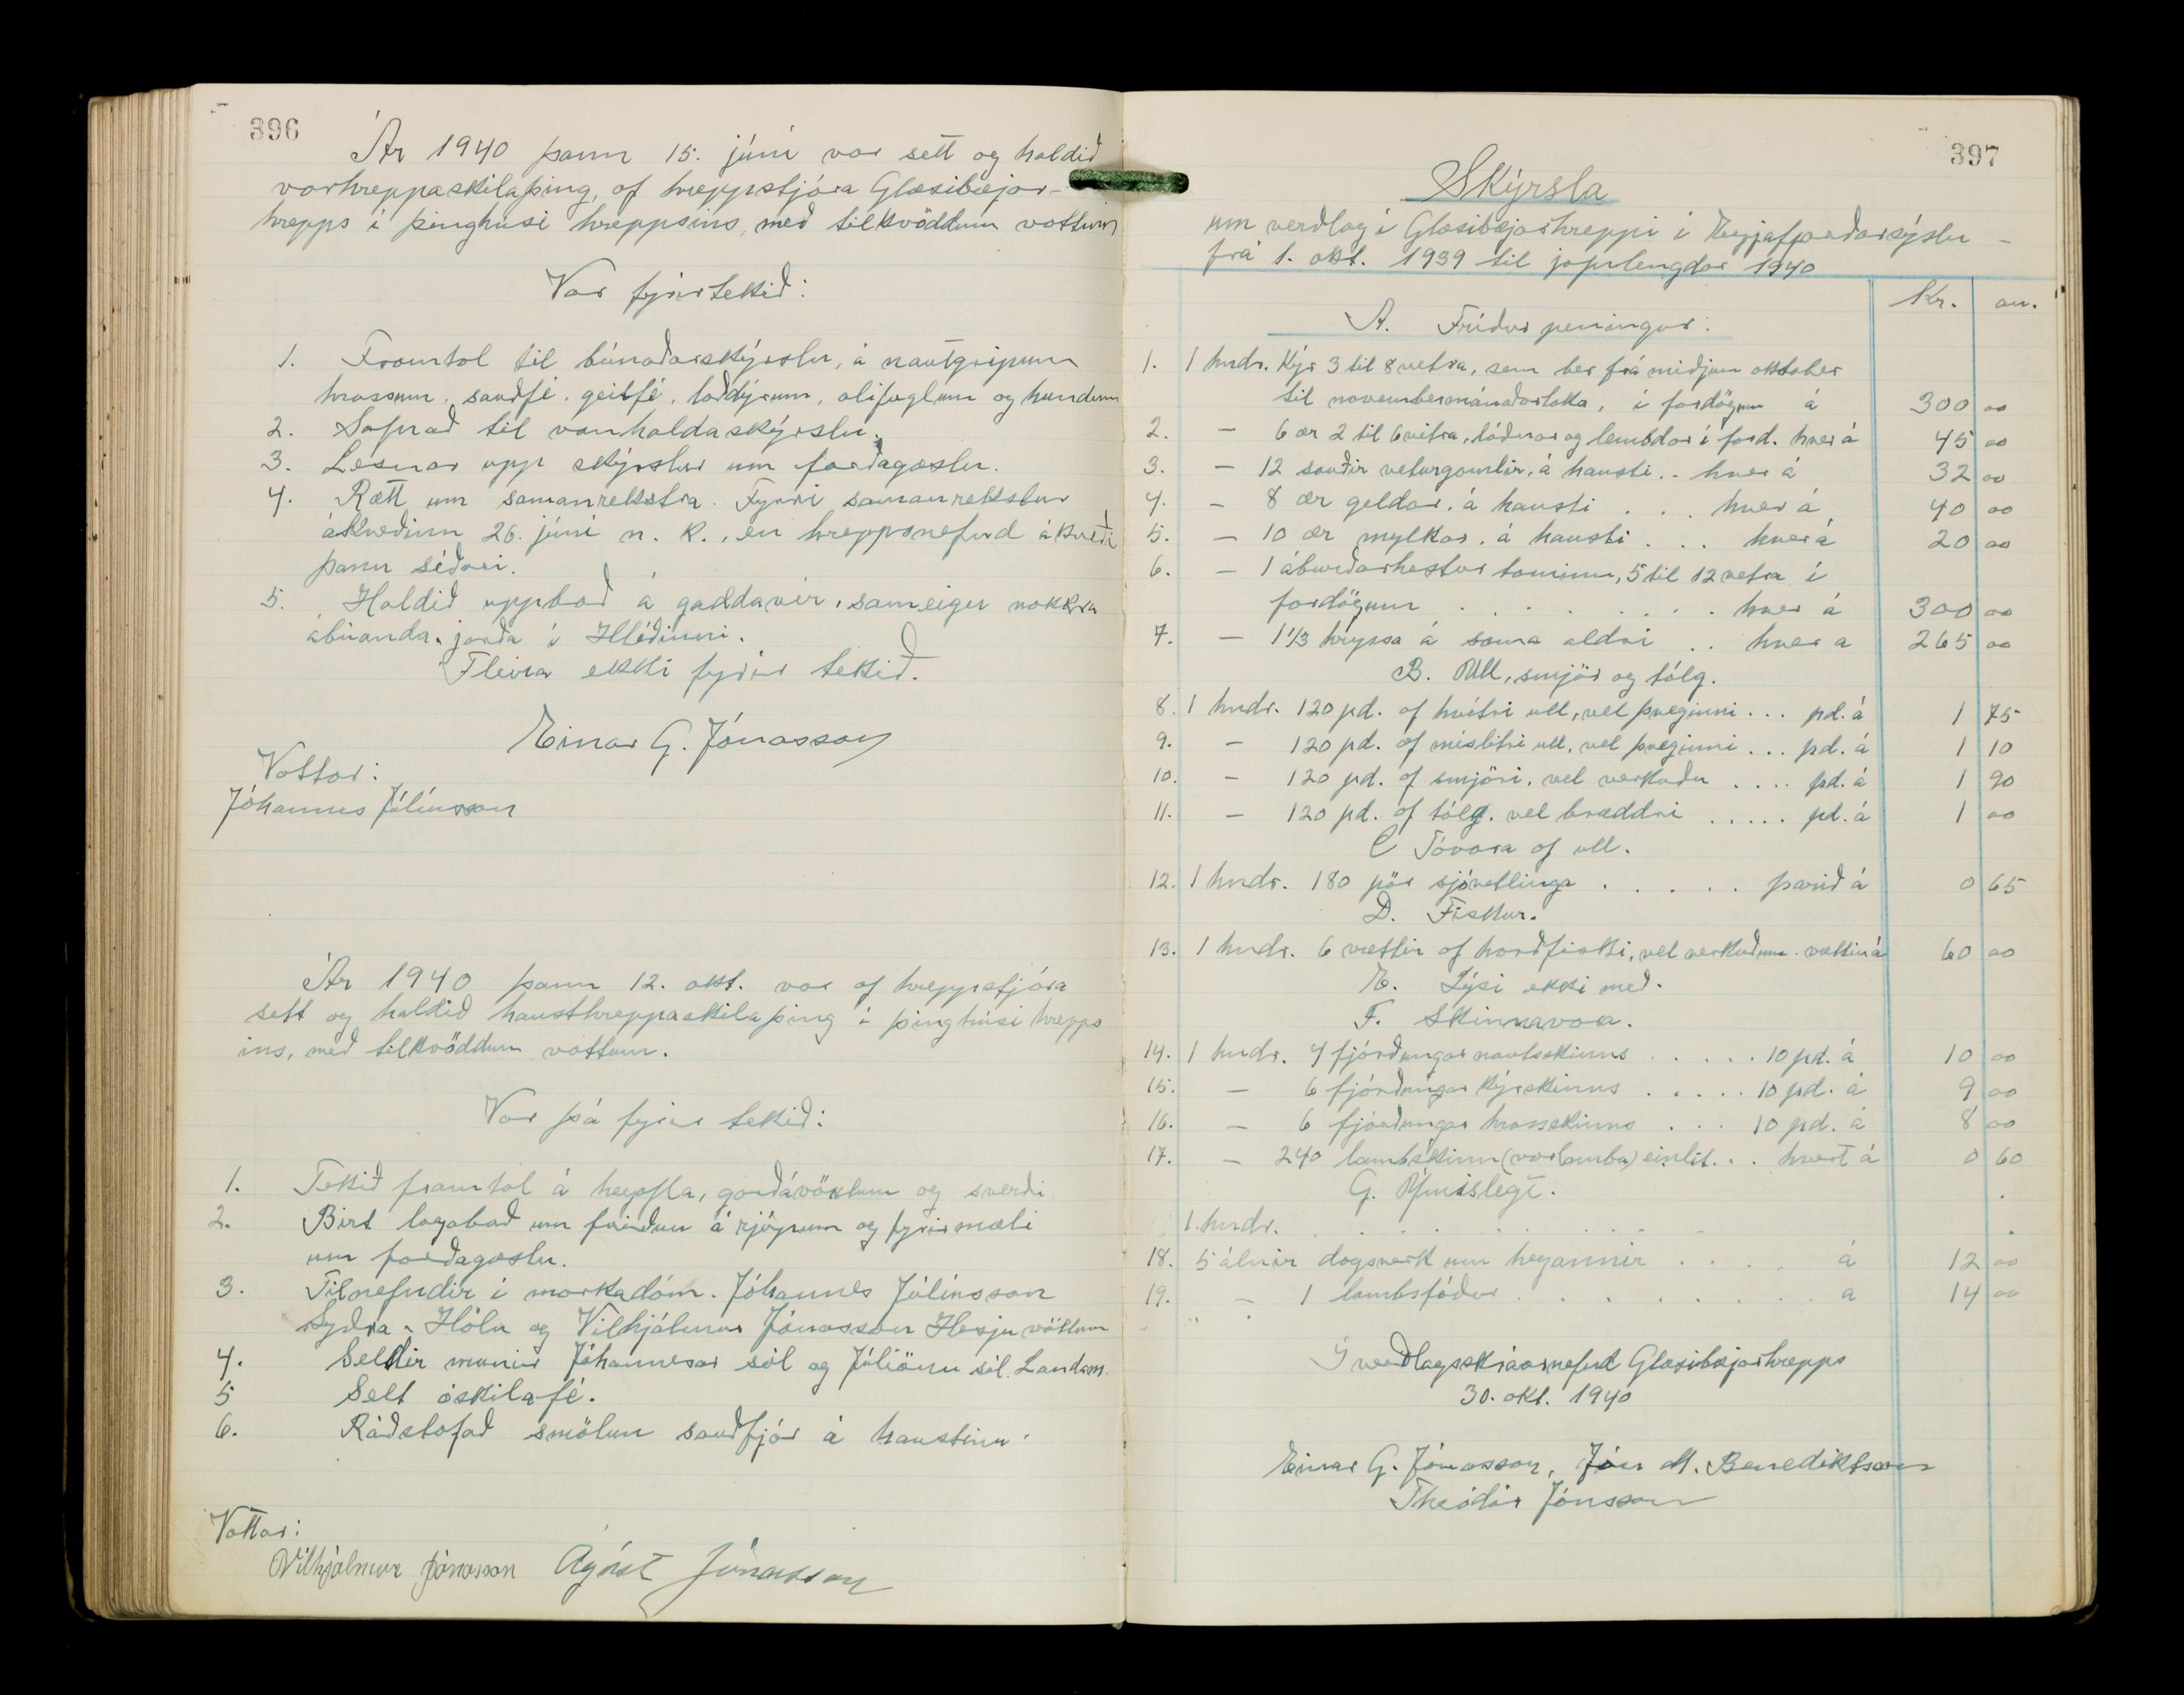 396
Ár 1940 þann 15. júní var sett og haldið
vorhreppaskilaþing, af hreppstjóra Glæsibæjar-
hrepps í þinghúsi hreppsins, með tilkvöddum vottum
Var fyrirtekið:
1. Framtal til búnaðarskýrslu, á nautgripum
hrossum, sauðfé, geitfé, loðdýrum, alifuglum og hundum
2. Safnað til vanhaldaskýrslu.
3. Lesnar upp skýrslur um forðagæslu.
4. Rætt um samanrekstra. Fyrri samanrekstur
ákveðinn 26. júní n. k., en hreppsnefnd ákveði
þann síðari.
5. Haldið uppboð á gaddavír, sameign nokkra
ábúanda jarða í Hlíðinni.
Fleira ekki fyrir tekið.
Einar G. Jónasson
Vottar:
Jóhannes Júlíusson
Ár 1940 þann 12. okt. var af hreppstjóra
sett og haldið hausthreppaskilaþing í þinghúsi hrepps
ins, með tilkvöddum vottum.
Var þá fyrir tekið:
1. Tekið framtal á heyafla, garðávöxtum og sverði
2. Birt lagaboð um friðun á rjúpum og fyrirmæli
um forðagæslu.
3. Tilnefndir í markadóm. Jóhannes Júlíusson
Syðra-Hóli og Vilhjálmur Jónasson Hesjuvöllum
4. Seldir munir Jóhannesar sál og Júlíönu sál. Landam.
5 Selt óskilafé.
6. Ráðstafað smölun sauðfjár á haustinu.
Vottar:
Vilhjálmur Jónasson Ágúst Jónasson
397
Skýrsla
um verðlag í Glæsibæjarhreppi í Eyjafjarðarsýslu –
frá 1. okt. 1939 til jafnlengdar 1940
Kr. au.
A. Fríður peningur:
1. 1 hndr. Kýr 3 til 8 vetra, sem ber frá miðjum október
til novembermánaðarloka, í fardögum á 300 00
2. – 6 ær 2 til 6 vetra, loðnar og lembdar í fard. hver á 45 00
3. – 12 sauðir veturgamlir, á hausti .. hver á 32 00
4. – 8 ær geldar, á hausti . . . hver á 40 00
5. – 10 ær mylkar, á hausti . . . hver á 20 00
6. – 1 áburðarhestur taminn, 5 til 12 vetra í
fardögum . . . . . . . . hver á 300 00
7. – 1 1/3 hryssa á sama aldri . . hver a 265 00
B. Ull, smjör og tólg.
8. 1 hndr. 120 pd. af hvítri ull, vel þveginni ... pd. á 1 75
9. – 120 pd. af mislitri ull, vel þveginni ... pd. á 1 10
10. – 120 pd. af smjöri, vel verkuðu .... pd. á 1 90
11. – 120 pd. af tólg, vel bræddri ..... pd. á 1 00
C Tóvara af ull.
12. 1 hndr. 180 pör sjóvettlinga . . . . . parið á 0 65
D. Fiskur.
13. 1 hndr. 6 vættir af harðfiski, vel verkuðum. vættin á 60 00
E. Lýsi ekki með.
F. Skinnavara.
14. 1 hndr. 4 fjórðungar nautsskinns . . . . . 10 pd. á 10 00
15. – 6 fjórðungar kýrskinns . . . . . 10 pd. á 9 00
16. – 6 fjórðungar hrossskinns . . . 10 pd. á 8 00
17. – 240 lambskinn (vorlamba) einlit. . . hvert á 0 60
G. Ýmislegt.
1. hndr. . . . . . . .
18. 5 álnir dagsverk um heyannir . . . . á 12 00
19. – 1 lambsfóður . . . . . . . . . a 14 00
Í verðlagsskrárnefnd Glæsibæjarhrepps
30. okt. 1940
Einar G. Jónasson, Jón M. Benediktsson
Theódór Jónsson